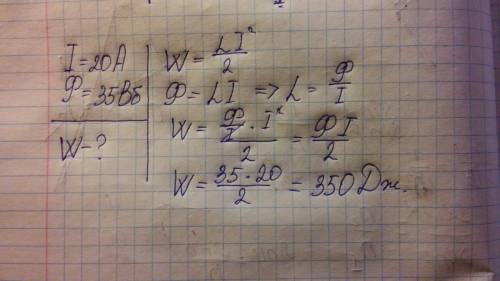 I = 20A
Ф = 35Вб
W - ?
W = LI²/2
Ф = LI => L = Ф/I
W = (Ф/I · I²)/2 = ФI/2
W = 35·20/2 = 350 Дж.